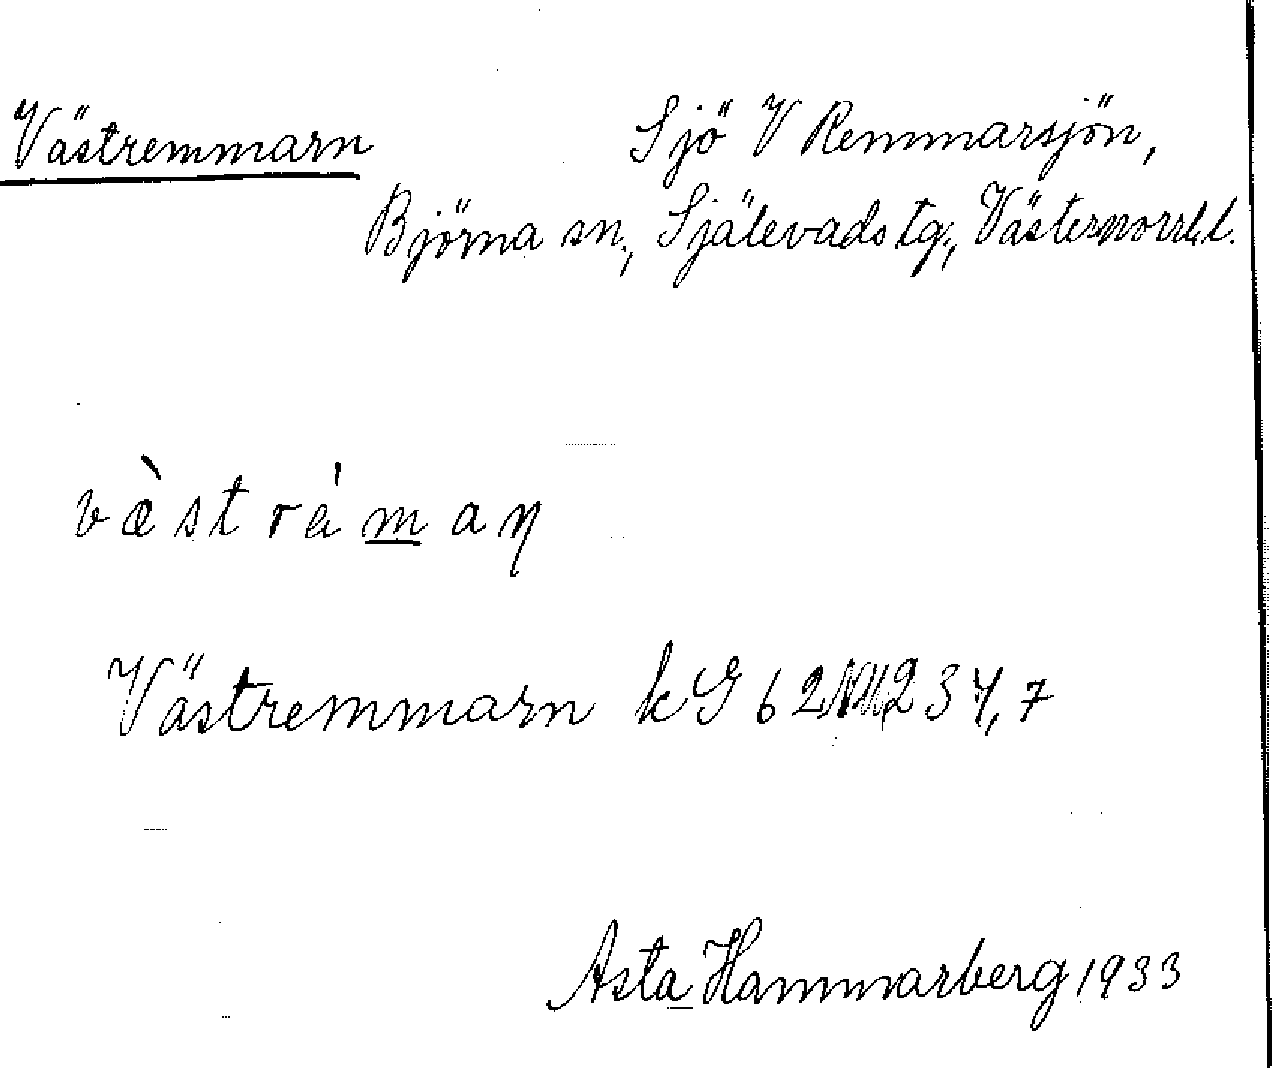 Västremmarn Sjö V Remmarsjön,
Björna sn, Själevads tg, Västernorrl.l.
væ̀strémaŋ
Västremmarn kG 62 234,7
Asta Hammarberg 1933